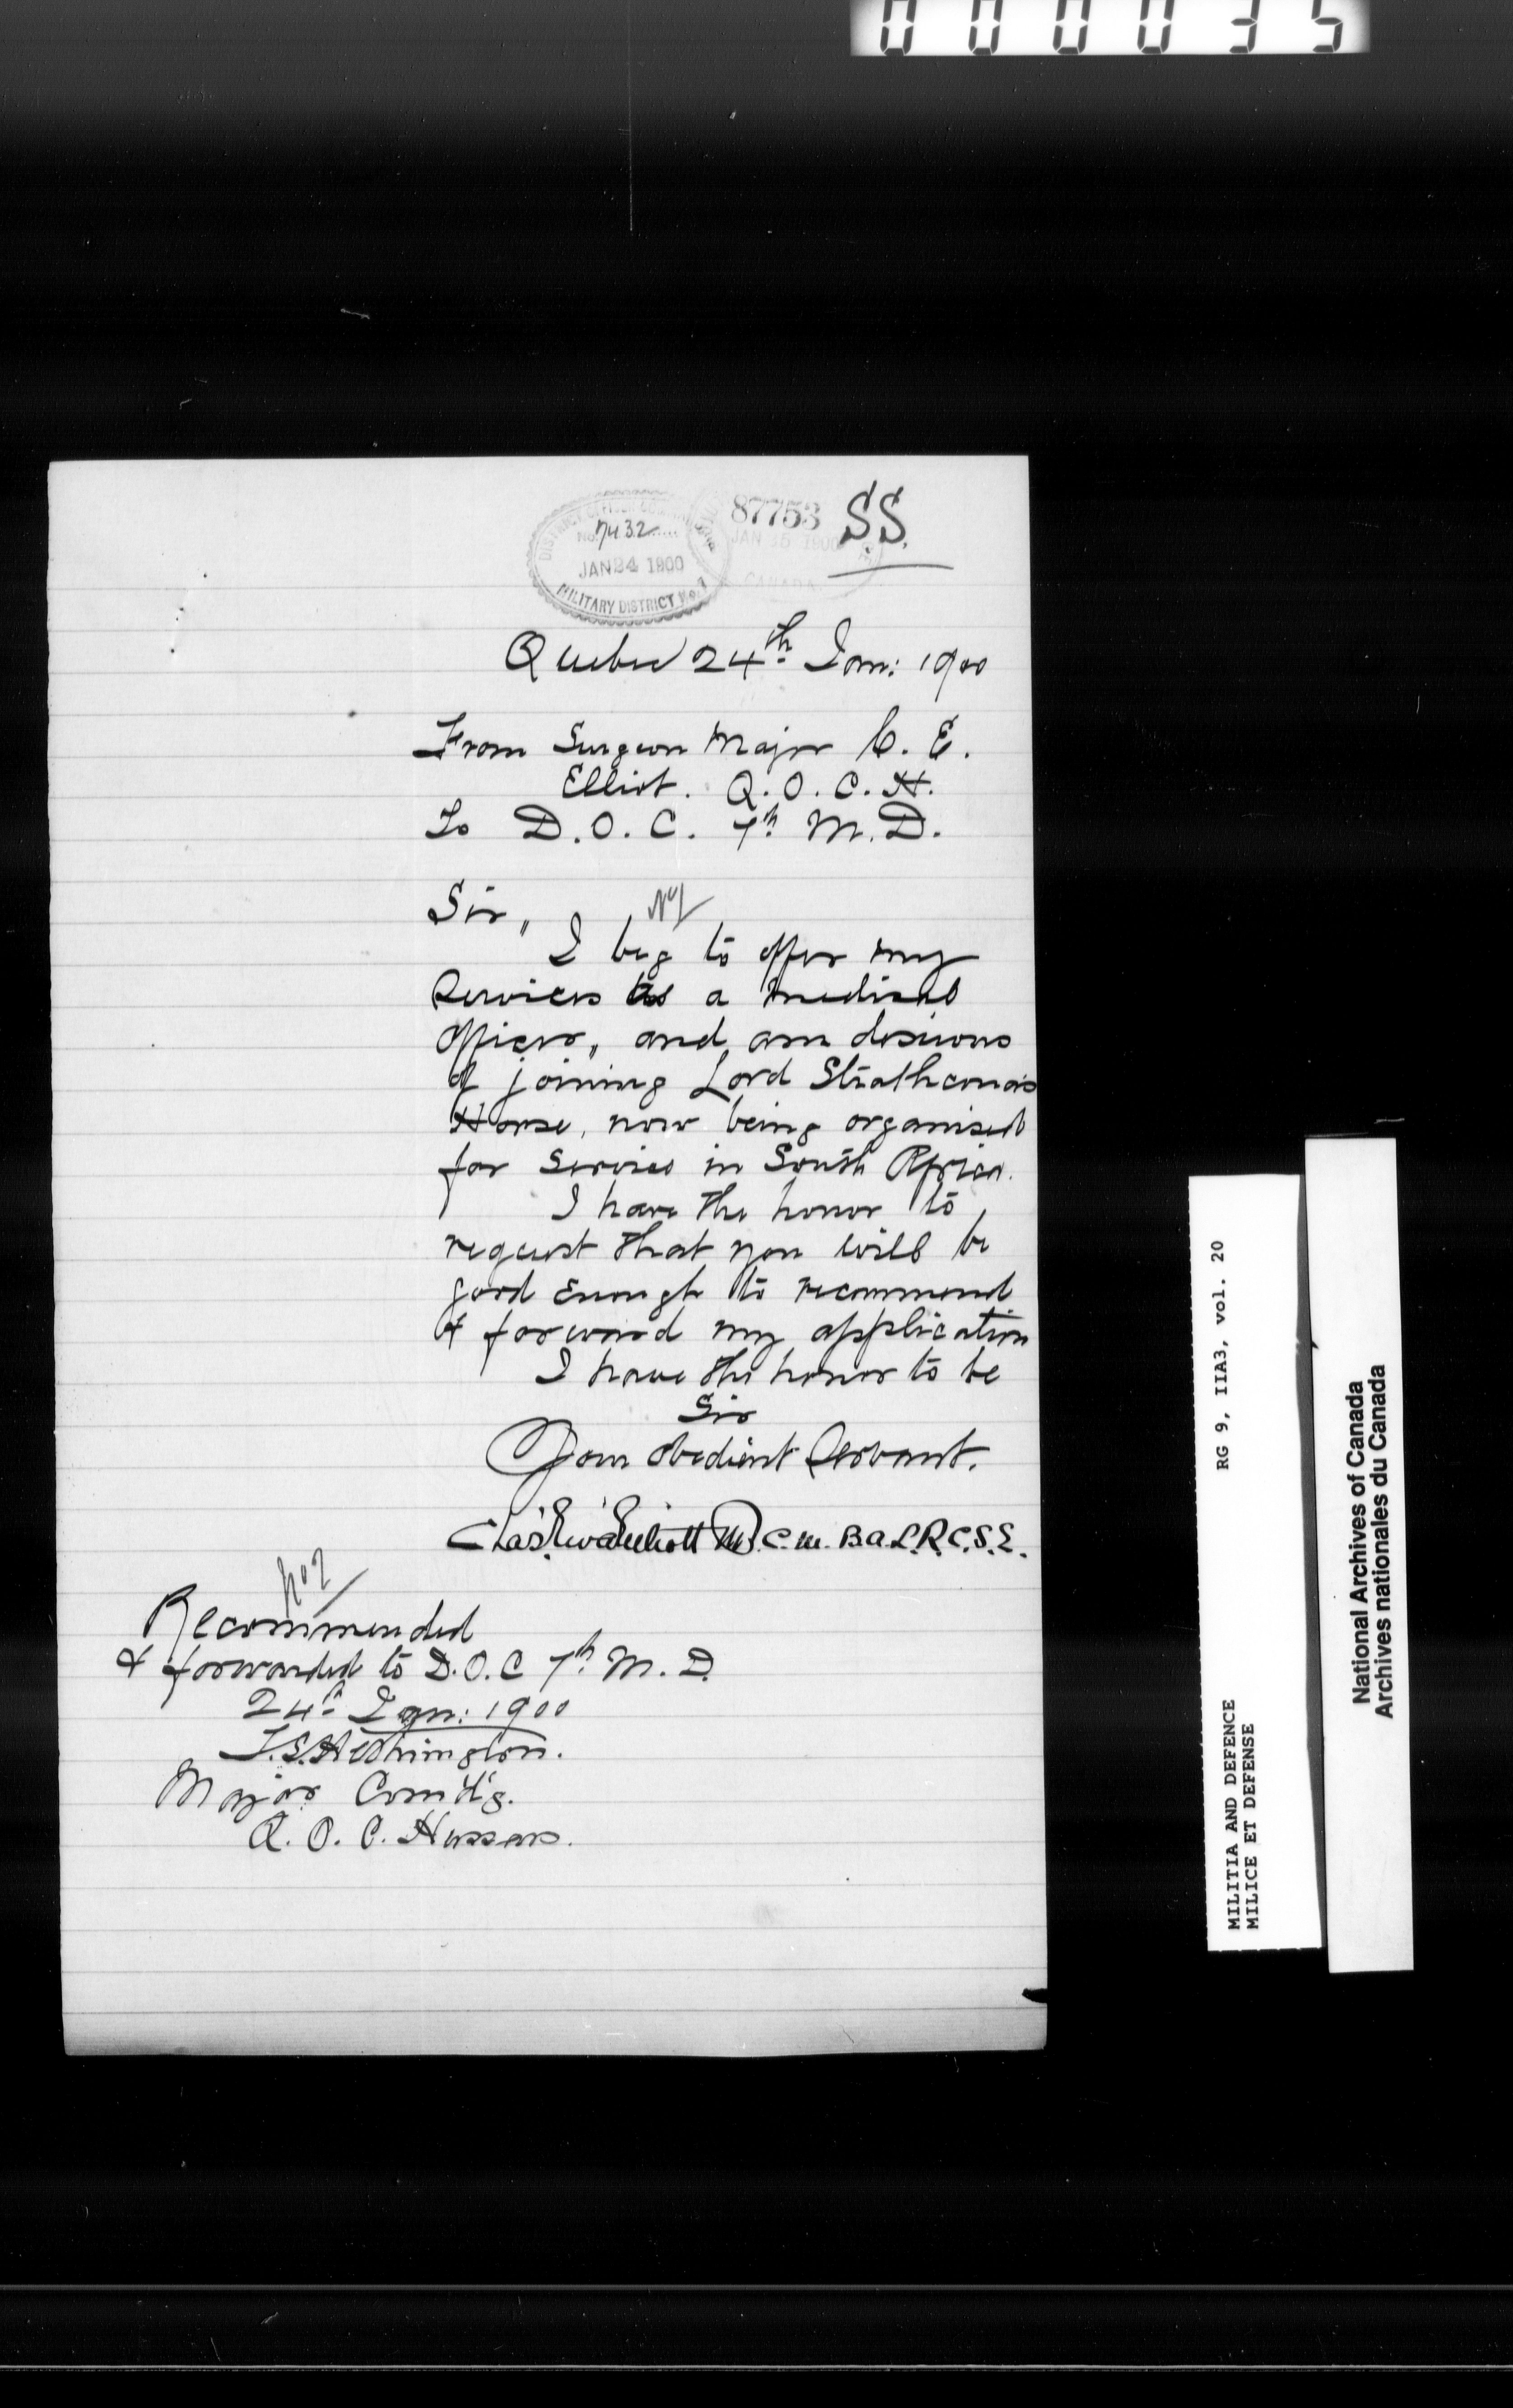 000035
87753 S.S.
DISTRICT OFFICER COMMANDING
No. 7432
JAN 24 1900
MILITARY DISTRICT No. 7
JAN 1900
CANADA
Quebec 24th Jan: 1900
From Surgeon Major C. E.
Elliot. Q.O.C.H.
To D.O.C. 7th M.D.
No 1
Sir,,
I beg to offer my
Services as a medical
officer,, and am desirous
of joining Lord Strathcona's
Horse, now being organised
for Service in South Africa.
I have the honor to
request that you will be
good Enough to recommend
& forward my application
I have the honor to be
Sir
Your obedient Servant.
Chas. Elliott M.D. C.M. B.A. L.R.C.S.E.
No 2
Recommended
& forwarded to D.O.C 7th M.D.
24th Jan: 1900
T.S. Hethrington.
Major Com'd'g.
Q.O.C. Hussars.
RG 9, IIA3, vol. 20
MILITIA AND DEFENCE
MILICE ET DEFENSE
National Archives of Canada
Archives nationales du Canada